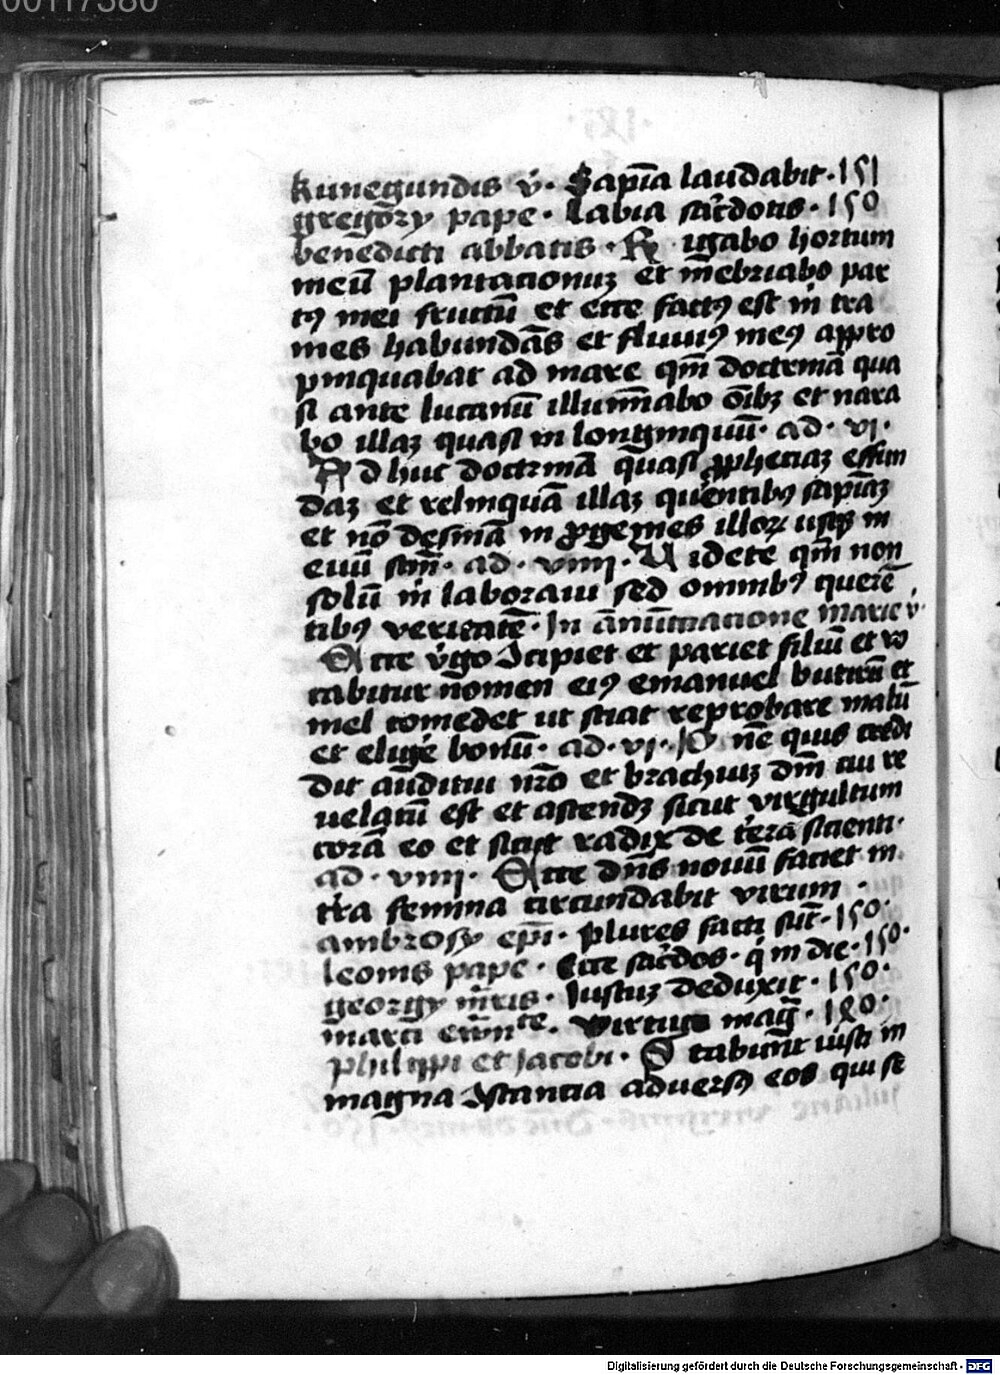 00117380
kunegundis v̄. Sapīa laudabit. 151
gregorȳ pape. Labia sac̄dotis. 150
benedicti abbatis. R igabo hortum
meū plantacionuꝫ et īnebriabo par
tꝰ mei fructū et ecce factꝰ est in tra
mes habundās et fluuiꝰ meꝰ appro
pinquabat ad mare qm̄ doctrinā qua
si ante lucanū illuīabo ōibꝫ et narra
bo illaꝫ quasi in longinquū. ad. vi.
A d huc doctrinā quasi ꝓphetiaꝫ effun
daꝫ et relinquā illaꝫ querentibꝰ sapiāꝫ
et nō desinā in ꝓgenies illoꝝ usqꝫ in
euū sc̄m. ad. viiij. U idete qm̄ non
solū in laboraui sed omnibꝰ querē
tibꝰ veritatē. In ānūtiacione marie v̄.
E cce v̄go ꝯcipiet et pariet filiū et vo
cabitur nomen eiꝰ emanuel butirū et
mel comedet ut sciat reprobare malū
et eligē bonū. ad. vi. D n̄e quis credi
dit auditui nr̄o et brachiuꝫ dn̄i cui re
uelatū est et ascendꝫ sicut virgultum
corā eo et sicut radix de tera sicienti.
ad. viiij. E cce dn̄s nouū faciet in
tr̄a femina circundabit virum.
ambrosȳ ep̄i. plures facti sūt. 150.
leonis pape. Ecce sac̄dos. q̇ in die. 150.
georgȳ m̄ris. Iustuꝫ deduxit. 150.
marci ewāste. Virtute maḡ. 180.
philippi et Jacobi. S tabunt iusti in
magna ꝯstantia aduersꝰ eos qui se
Digitalisierung gefördert durch die Deutsche Forschungsgemeinschaft - DFG